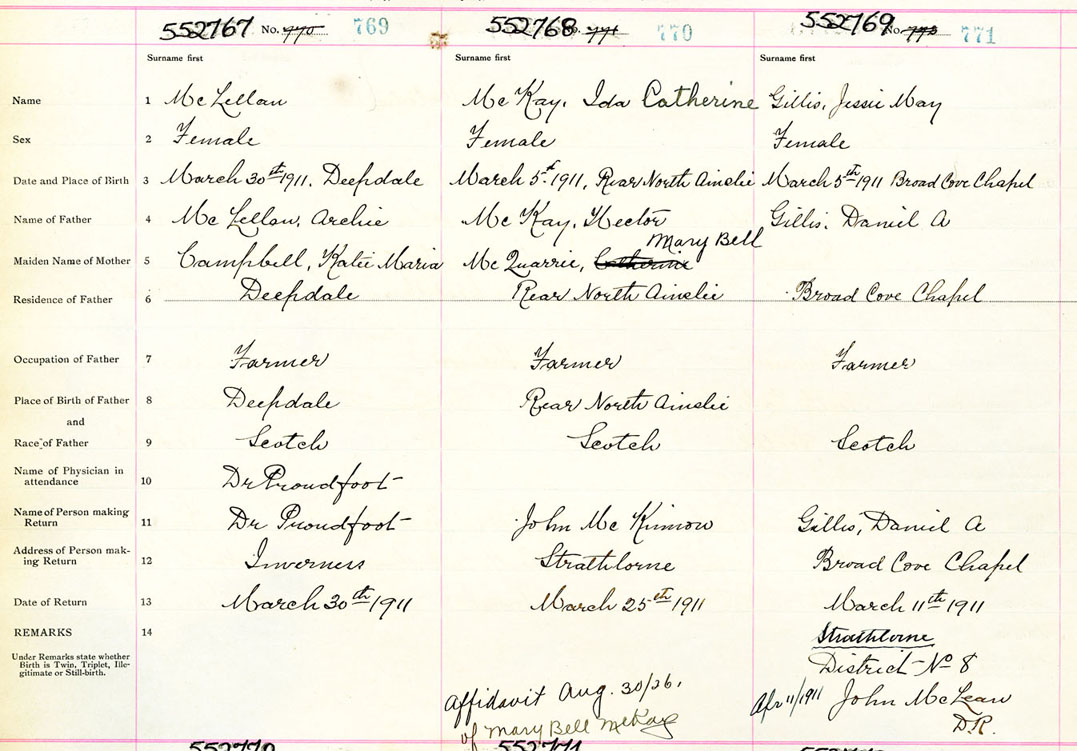 552767 No. 770 769 552768 No. 771 770 552769 No. 772 771
Surname first Surname first Surname first
Name 1 McLellan McKay, Ida Catherine Gillis, Jessie May
Sex 2 Female Female Female
Date and Place of Birth 3 March 30th 1911. Deepdale March 5th 1911, Rear North Ainslie March 5th 1911 Broad Cove Chapel
Name of Father 4 McLellan, Archie McKay, Hector Gillis, Daniel A
Mary Bell
Maiden Name of Mother 5 Campbell, Katie Maria McQuarrie, Catherine
Residence of Father 6 Deepdale Rear North Ainslie Broad Cove Chapel
Occupation of Father 7 Farmer Farmer Farmer
Place of Birth of Father 8 Deepdale Rear North Ainslie
and
Race of Father 9 Scotch Scotch Scotch
Name of Physician in
attendance 10 Dr Proudfoot
Name of Person making
Return 11 Dr Proudfoot John McKinnon Gillis, Daniel A
Address of Person mak-
ing Return 12 Inverness Strathlorne Broad Cove Chapel
Date of Return 13 March 30th 1911 March 25th 1911 March 11th 1911
REMARKS 14 Strathlorne
Under Remarks state whether
Birth is Twin, Triplet, Ille-
gitimate or Still-birth.
District No 8
Affidavit Aug. 30/26. Apr 11/1911 John McLean
of Mary Bell McKay D.R.
552770 552771